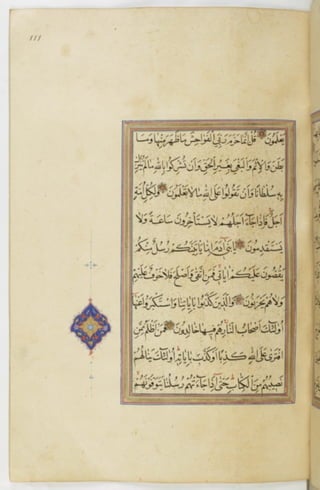 111
يعلمون قل انما حرم ربي الفواحش ما ظهر منها وما
بطن والاثم والبغي بغير الحق وان تشركوا بالله ما لم ينزل
به سلطانا وان تقولوا على الله ما لا تعلمون ولكل امة
اجل فاذا جاء اجلهم لا يستاخرون ساعة ولا
يستقدمون يا بني ادم اما ياتينكم رسل منكم
يقصون عليكم اياتي فمن اتقى واصلح فلا خوف عليهم
ولا هم يحزنون والذين كذبوا باياتنا واستكبروا عنها
اولئك اصحاب النار هم فيها خالدون فمن اظلم ممن
افترى على الله كذبا او كذب باياته اولئك ينالهم
نصيبهم من الكتاب حتى اذا جاءتهم رسلنا يتوفونهم